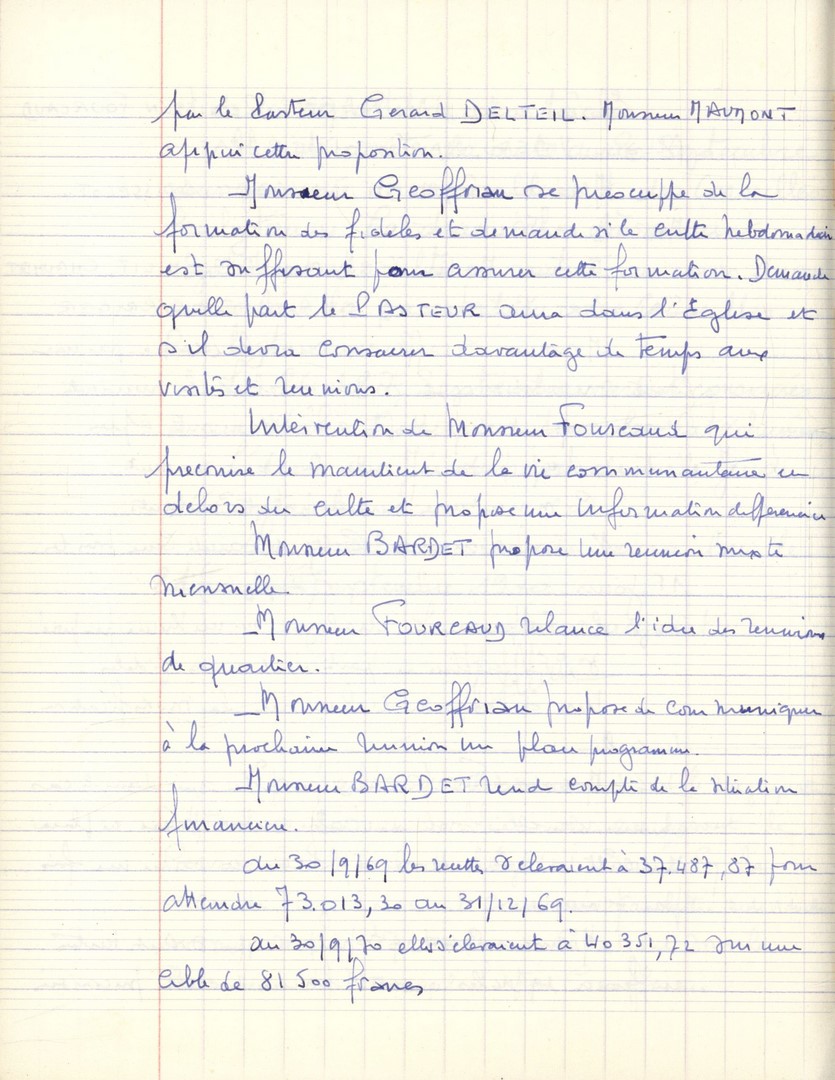 par le Pasteur Gerard DELTEIL. Monsieur MAUMONT
appui cette proposition.
Monsieur Geoffrian se preocuppe de la
formation des fideles et demande si le culte hebdomadair
est suffisant pour assurer cette formation. Demande
quelle part le PASTEUR aura dans l'Eglise et
s'il devra consacrer davantage de temps aux
visites et reunions.
Intervention de Monsieur Fourcaud qui
preconise le maintient de la vie communautaire en
dehors du culte et propose une information differencié
Monsieur BARDET propose une reunion mixte
mensuelle.
Monsieur FOURCAUD relance l'idée des reunions
de quartier.
Monsieur Geoffrian propose de communiquer
à la prochaine reunion un plan programme.
Monsieur BARDET rend compte de la situation
financiere.
du 30/9/69 les recettes s'elevaient à 37.487,87 pour
atteindre 73.013,30 au 31/12/69.
au 30/9/70 elles s'elevaient à 40 351,72 sur une
cible de 81 500 francs